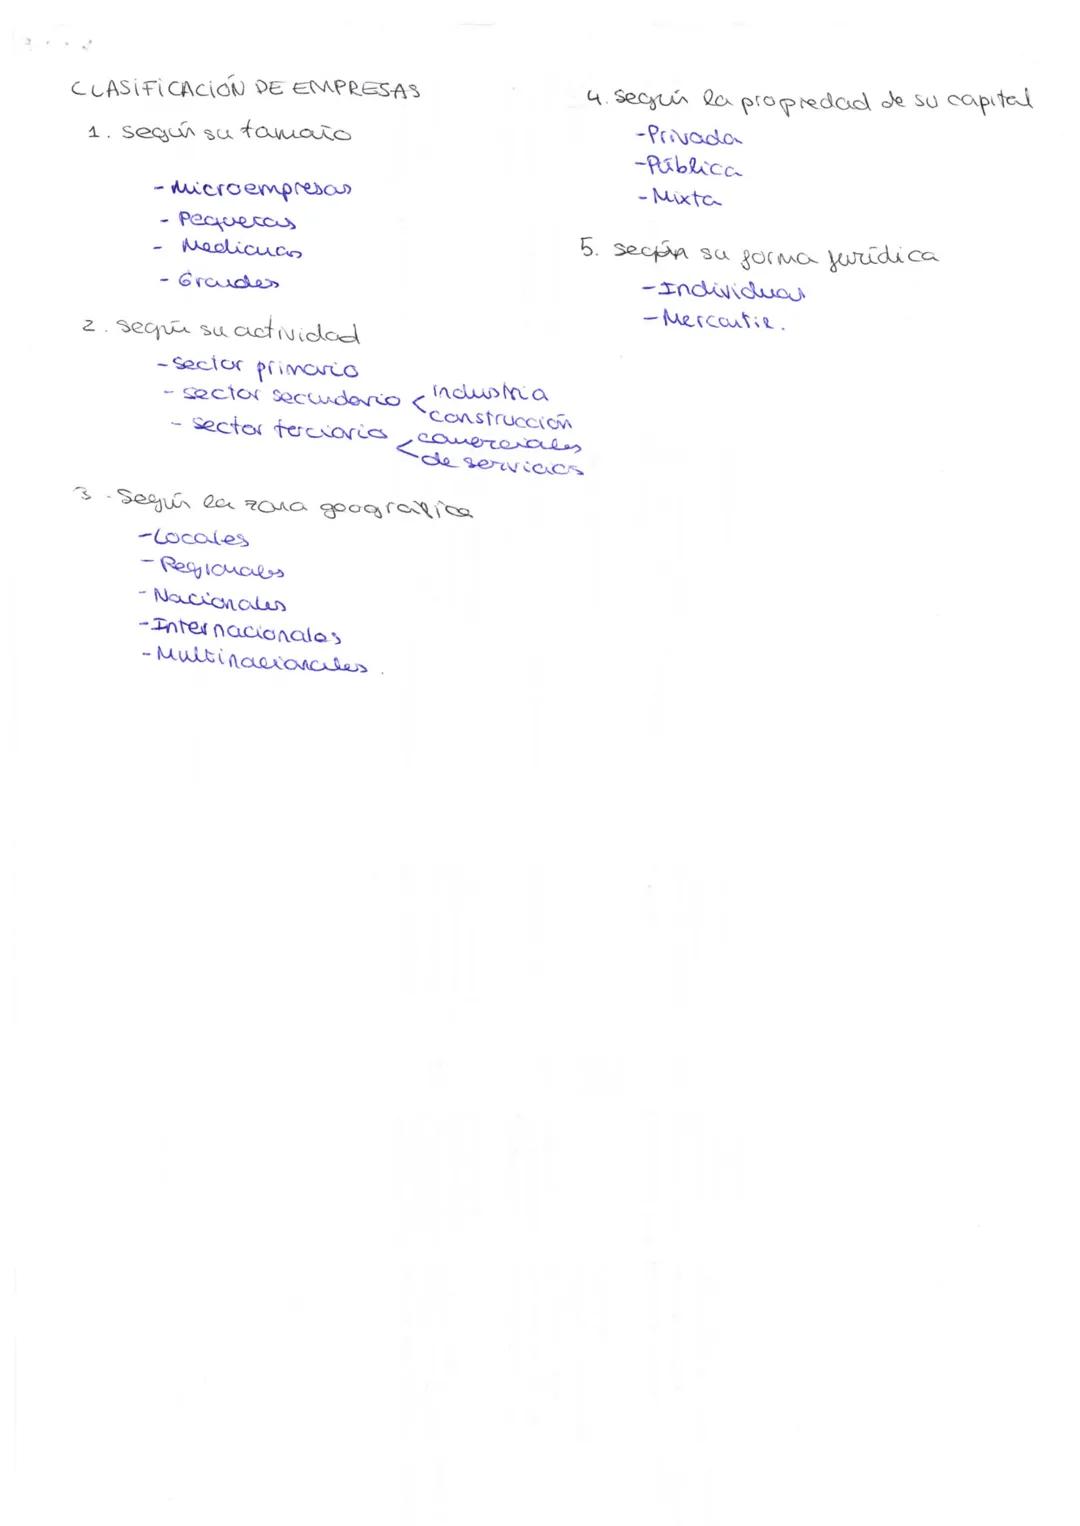 CLASIFICACIÓN DE EMPRESAS
1. según su tamaño
- Microempresas
- Pequeñas
- Medianas
- Grandes
2. según su actividad
- sector primario
- sector secundario < industria
construcción
- sector terciario < comerciales
de servicios
3. Según la zona geográfica
- Locales
- Regionales
- Nacionales
- Internacionales
- Multinacionales.
4. según la propiedad de su capital
- Privada
- Pública
- Mixta
5. según su forma jurídica
- Individual
- Mercantil.